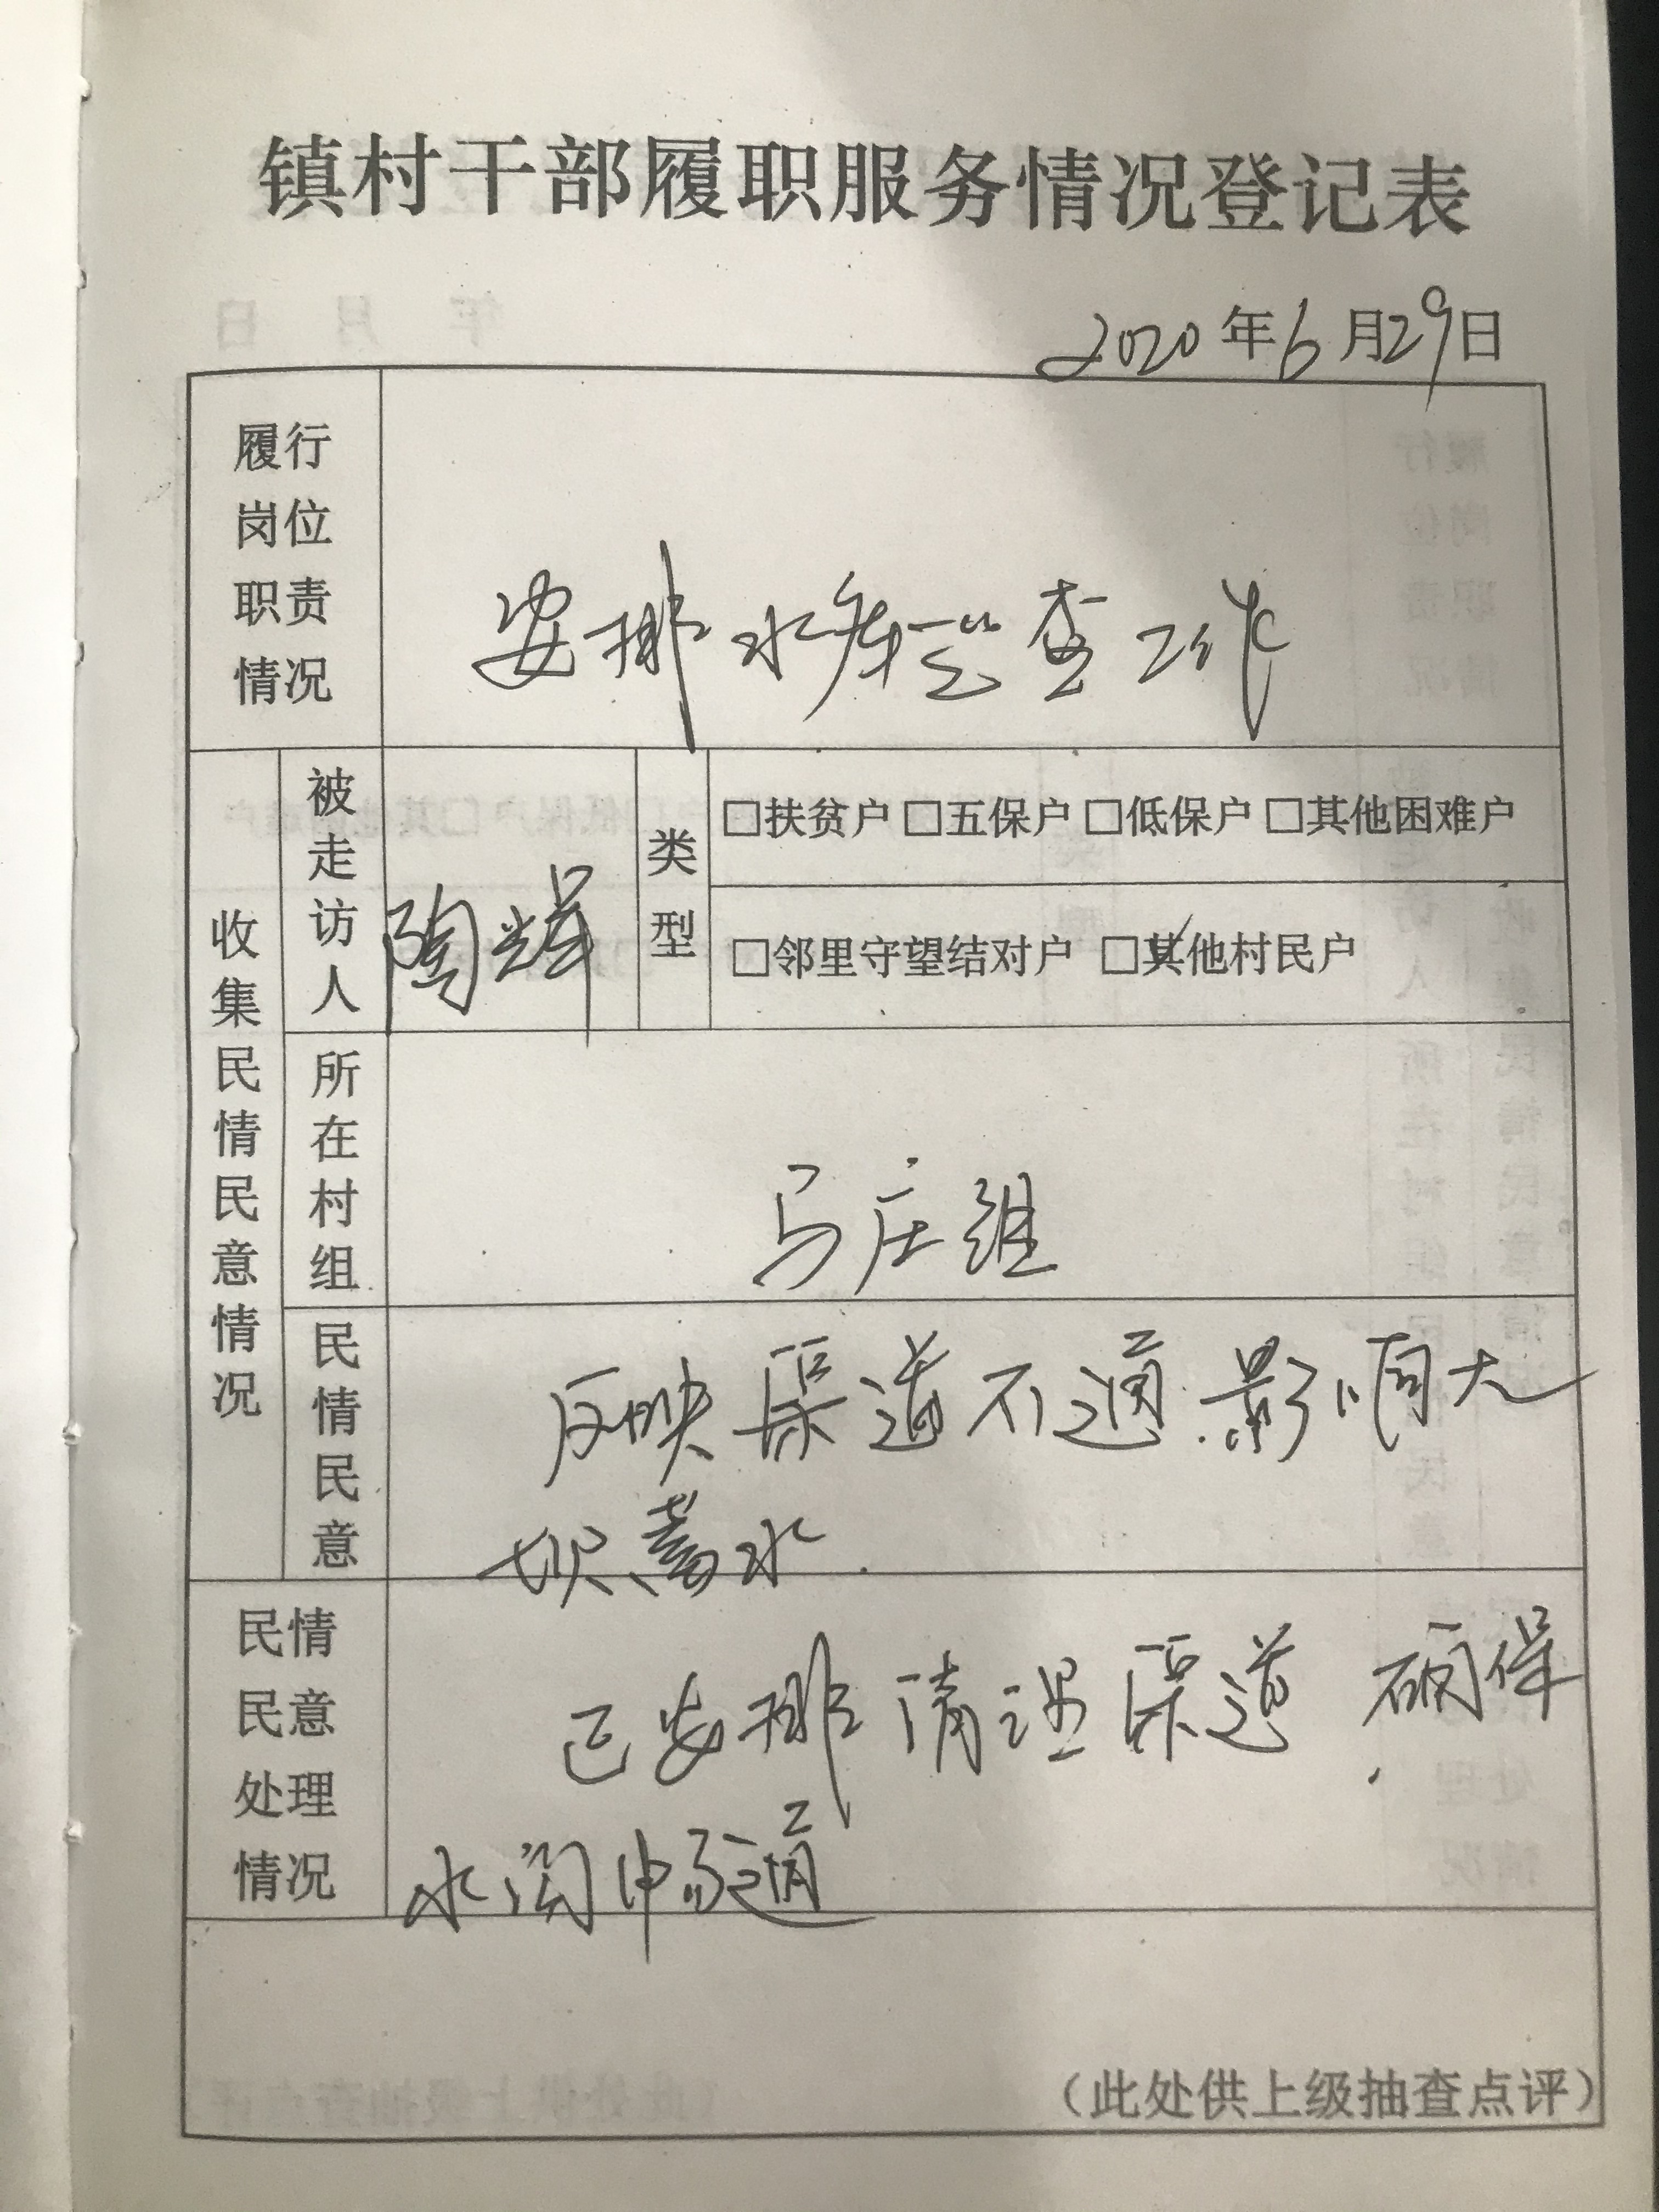 镇村干部履职服务情况登记表
2020年6月29日
履行
岗位
职责
情况
安排水库 查工作
收集民情民意情况
被走访人
陶辉
类型
□扶贫户 □五保户 □低保户 □其他困难户
□邻里守望结对户 □其他村民户
所在村组
马庄组
民情民意
反映渠道不通.影响大
坝蓄水.
民情
民意
处理
情况
已安排清理渠道,确保
水沟畅通
(此处供上级抽查点评)